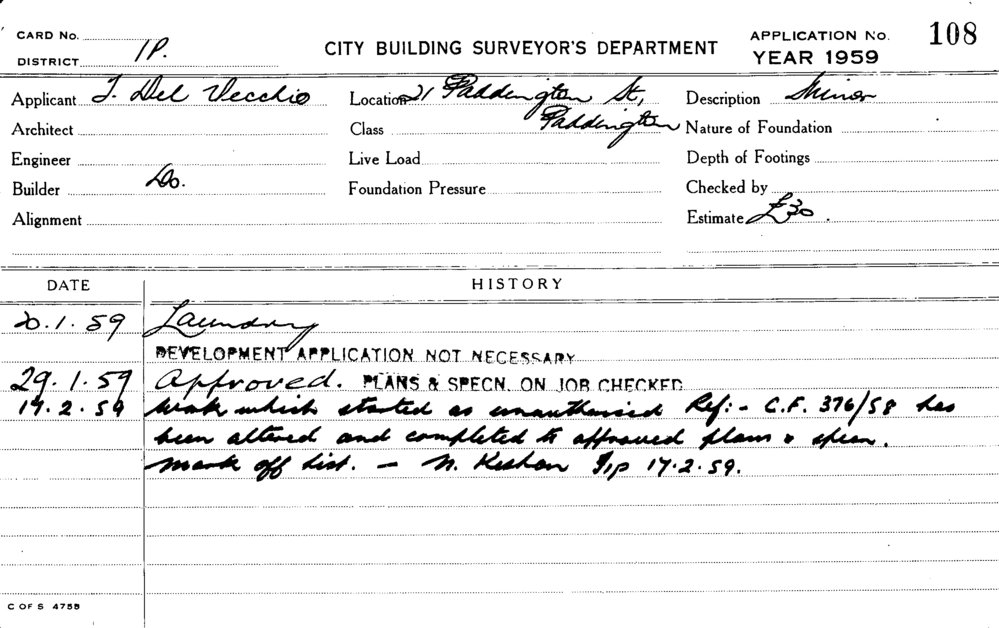 CARD No.
CITY BUILDING SURVEYOR'S DEPARTMENT
APPLICATION No. 108
DISTRICT 1P.
YEAR 1959
Applicant T. Del Vecchio Location 21 Paddington St, Paddington Description Minor
Architect Class Nature of Foundation
Engineer Live Load Depth of Footings
Builder Do. Foundation Pressure Checked by
Alignment Estimate £30.
DATE HISTORY
20.1.59 Laundry
DEVELOPMENT APPLICATION NOT NECESSARY
29.1.59 Approved. PLANS & SPECN. ON JOB CHECKED
17.2.59 Work which started as unauthorised Ref:- C.F. 376/58 has
been altered and completed to approved plans & specn.
Mark off list. - N. 1P 17.2.59.
C OF S 4758